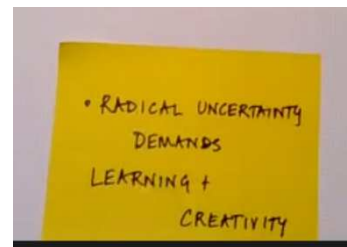 • RADICAL UNCERTAINTY
DEMANDS
LEARNING +
CREATIVITY